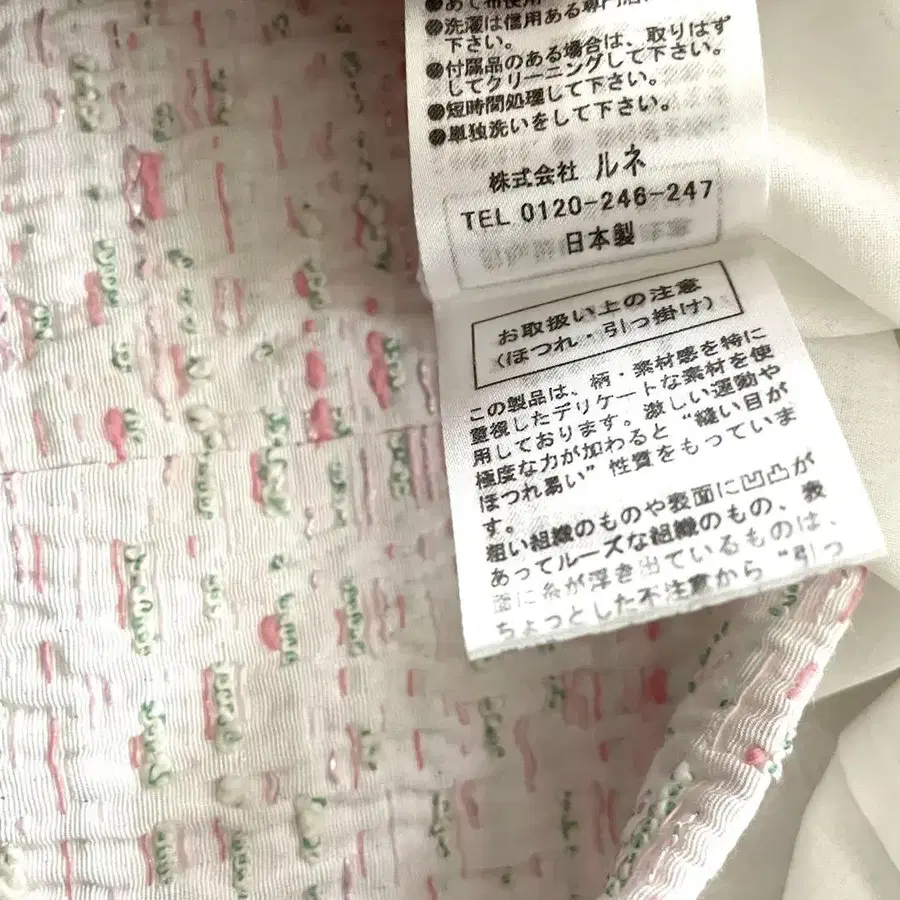 ●あて布使用
●洗濯は信用ある専門店
下さい。
●付属品のある場合は、取りはず
してクリーニングして下さい。
●短時間処理して下さい。
●単独洗いをして下さい。
株式会社 ルネ
TEL 0120-246-247
日本製
お取扱い上の注意
(ほつれ・引っ掛け)
この製品は、柄・素材感を特に
重視したデリケートな素材を使
用しております。激しい運動や
極度な力が加わると“縫い目が
ほつれ易い”性質をもっていま
す。
粗い組織のものや表面に凹凸が
あってルーズな組織のもの、表
面に糸が浮き出ているものは、
ちょっとした不注意から“引っ